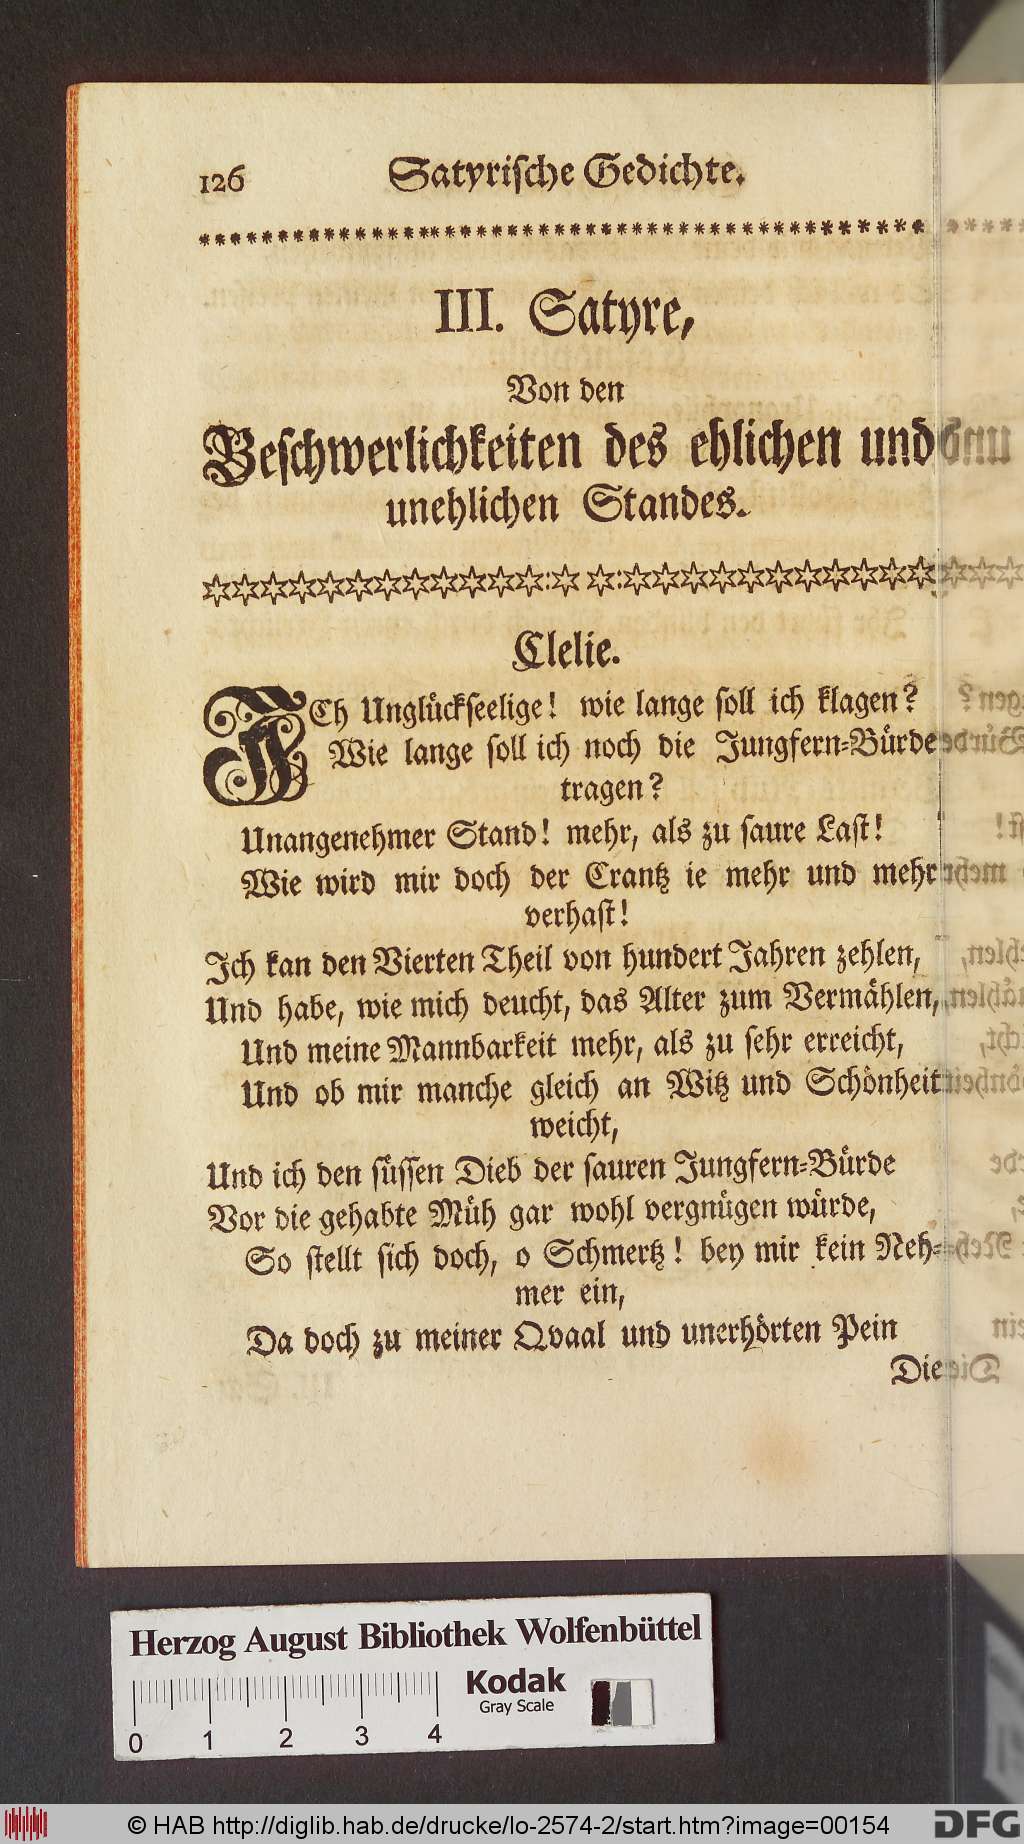 126 Satyrische Gedichte.
III. Satyre,
Von den
Beschwerlichkeiten des ehlichen und
unehlichen Standes.
Clelie.
ICh Unglückseelige! wie lange soll ich klagen?
Wie lange soll ich noch die Jungfern-Bürde
tragen?
Unangenehmer Stand! mehr, als zu saure Last!
Wie wird mir doch der Crantz ie mehr und mehr
verhast!
Ich kan den Vierten Theil von hundert Jahren zehlen,
Und habe, wie mich deucht, das Alter zum Vermählen,
Und meine Mannbarkeit mehr, als zu sehr erreicht,
Und ob mir manche gleich an Witz und Schönheit
weicht,
Und ich den süssen Dieb der sauren Jungfern-Bürde
Vor die gehabte Müh gar wohl vergnügen würde,
So stellt sich doch, o Schmertz! bey mir kein Neh-
mer ein,
Da doch zu meiner Qvaal und unerhörten Pein
Die
Herzog August Bibliothek Wolfenbüttel
Kodak
Gray Scale
0 1 2 3 4
© HAB http://diglib.hab.de/drucke/lo-2574-2/start.htm?image=00154
DFG